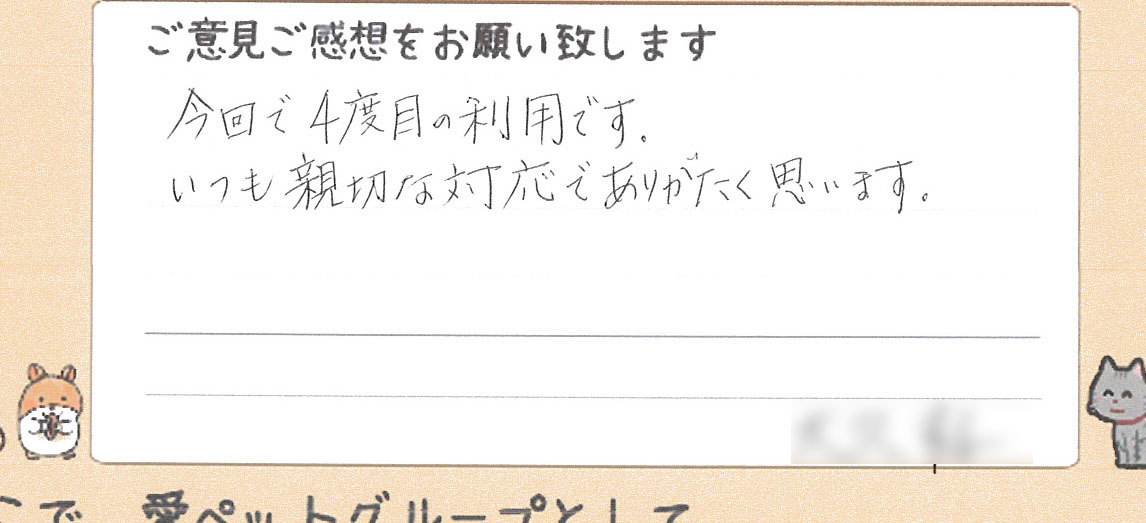 ご意見ご感想をお願い致します
今回で4度目の利用です。
いつも親切な対応でありがたく思います。
こで、愛ペットグループとして